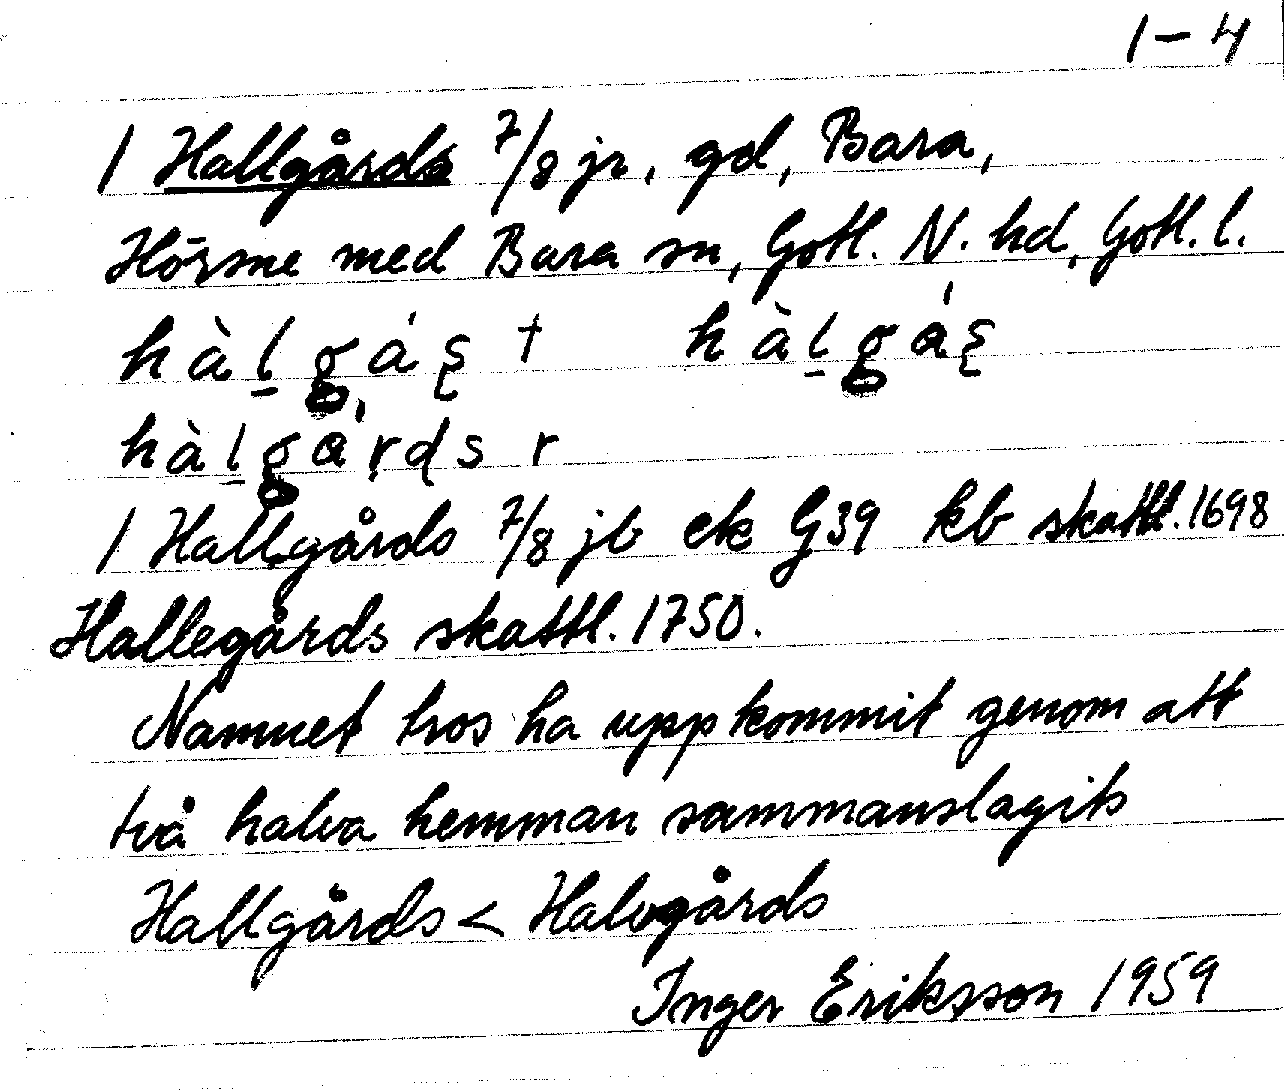 1-4
1 Hallgårds 7/8 jr, gd, Bara,
Hörsne med Bara sn, Gotl. N. hd, Gotl. l.
hàlgás † hàlgás
hàlgárds r
1 Hallgårds 7/8 jb ek G39 kb skattl. 1698
Hallegårds skattl. 1750.
Namnet tros ha uppkommit genom att
två halva hemman sammanslagits
Hallgårds < Halvgårds
Inger Eriksson 1959